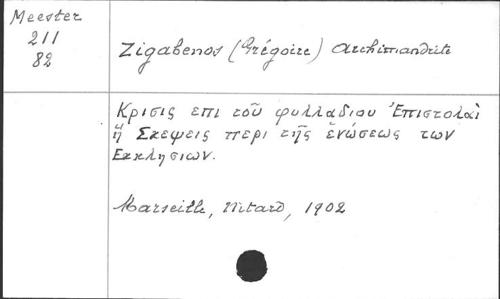 Meester
211
82
Zigabenos (Grégoire) Archimandrite
Κρισις επι τοῦ φυλλαδιου Ἐπιστολαὶ
ἤ Σκεψεις περι τῆς ἑνώσεως των
Εκκλησιων.
Marseille, Mitard, 1902